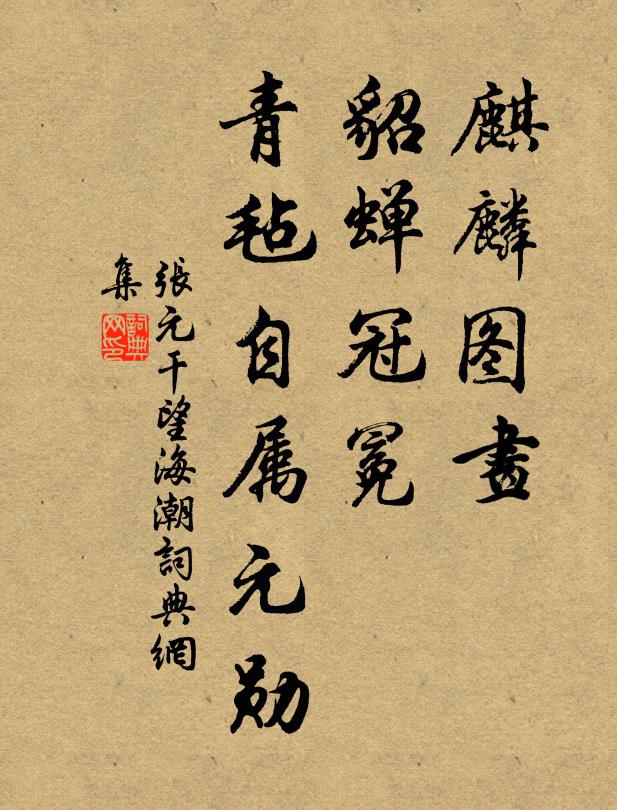 麒麟图畫
貂蝉冠冕
青毡自属元勋
張元干望海潮詞典網
集
詞典
网印